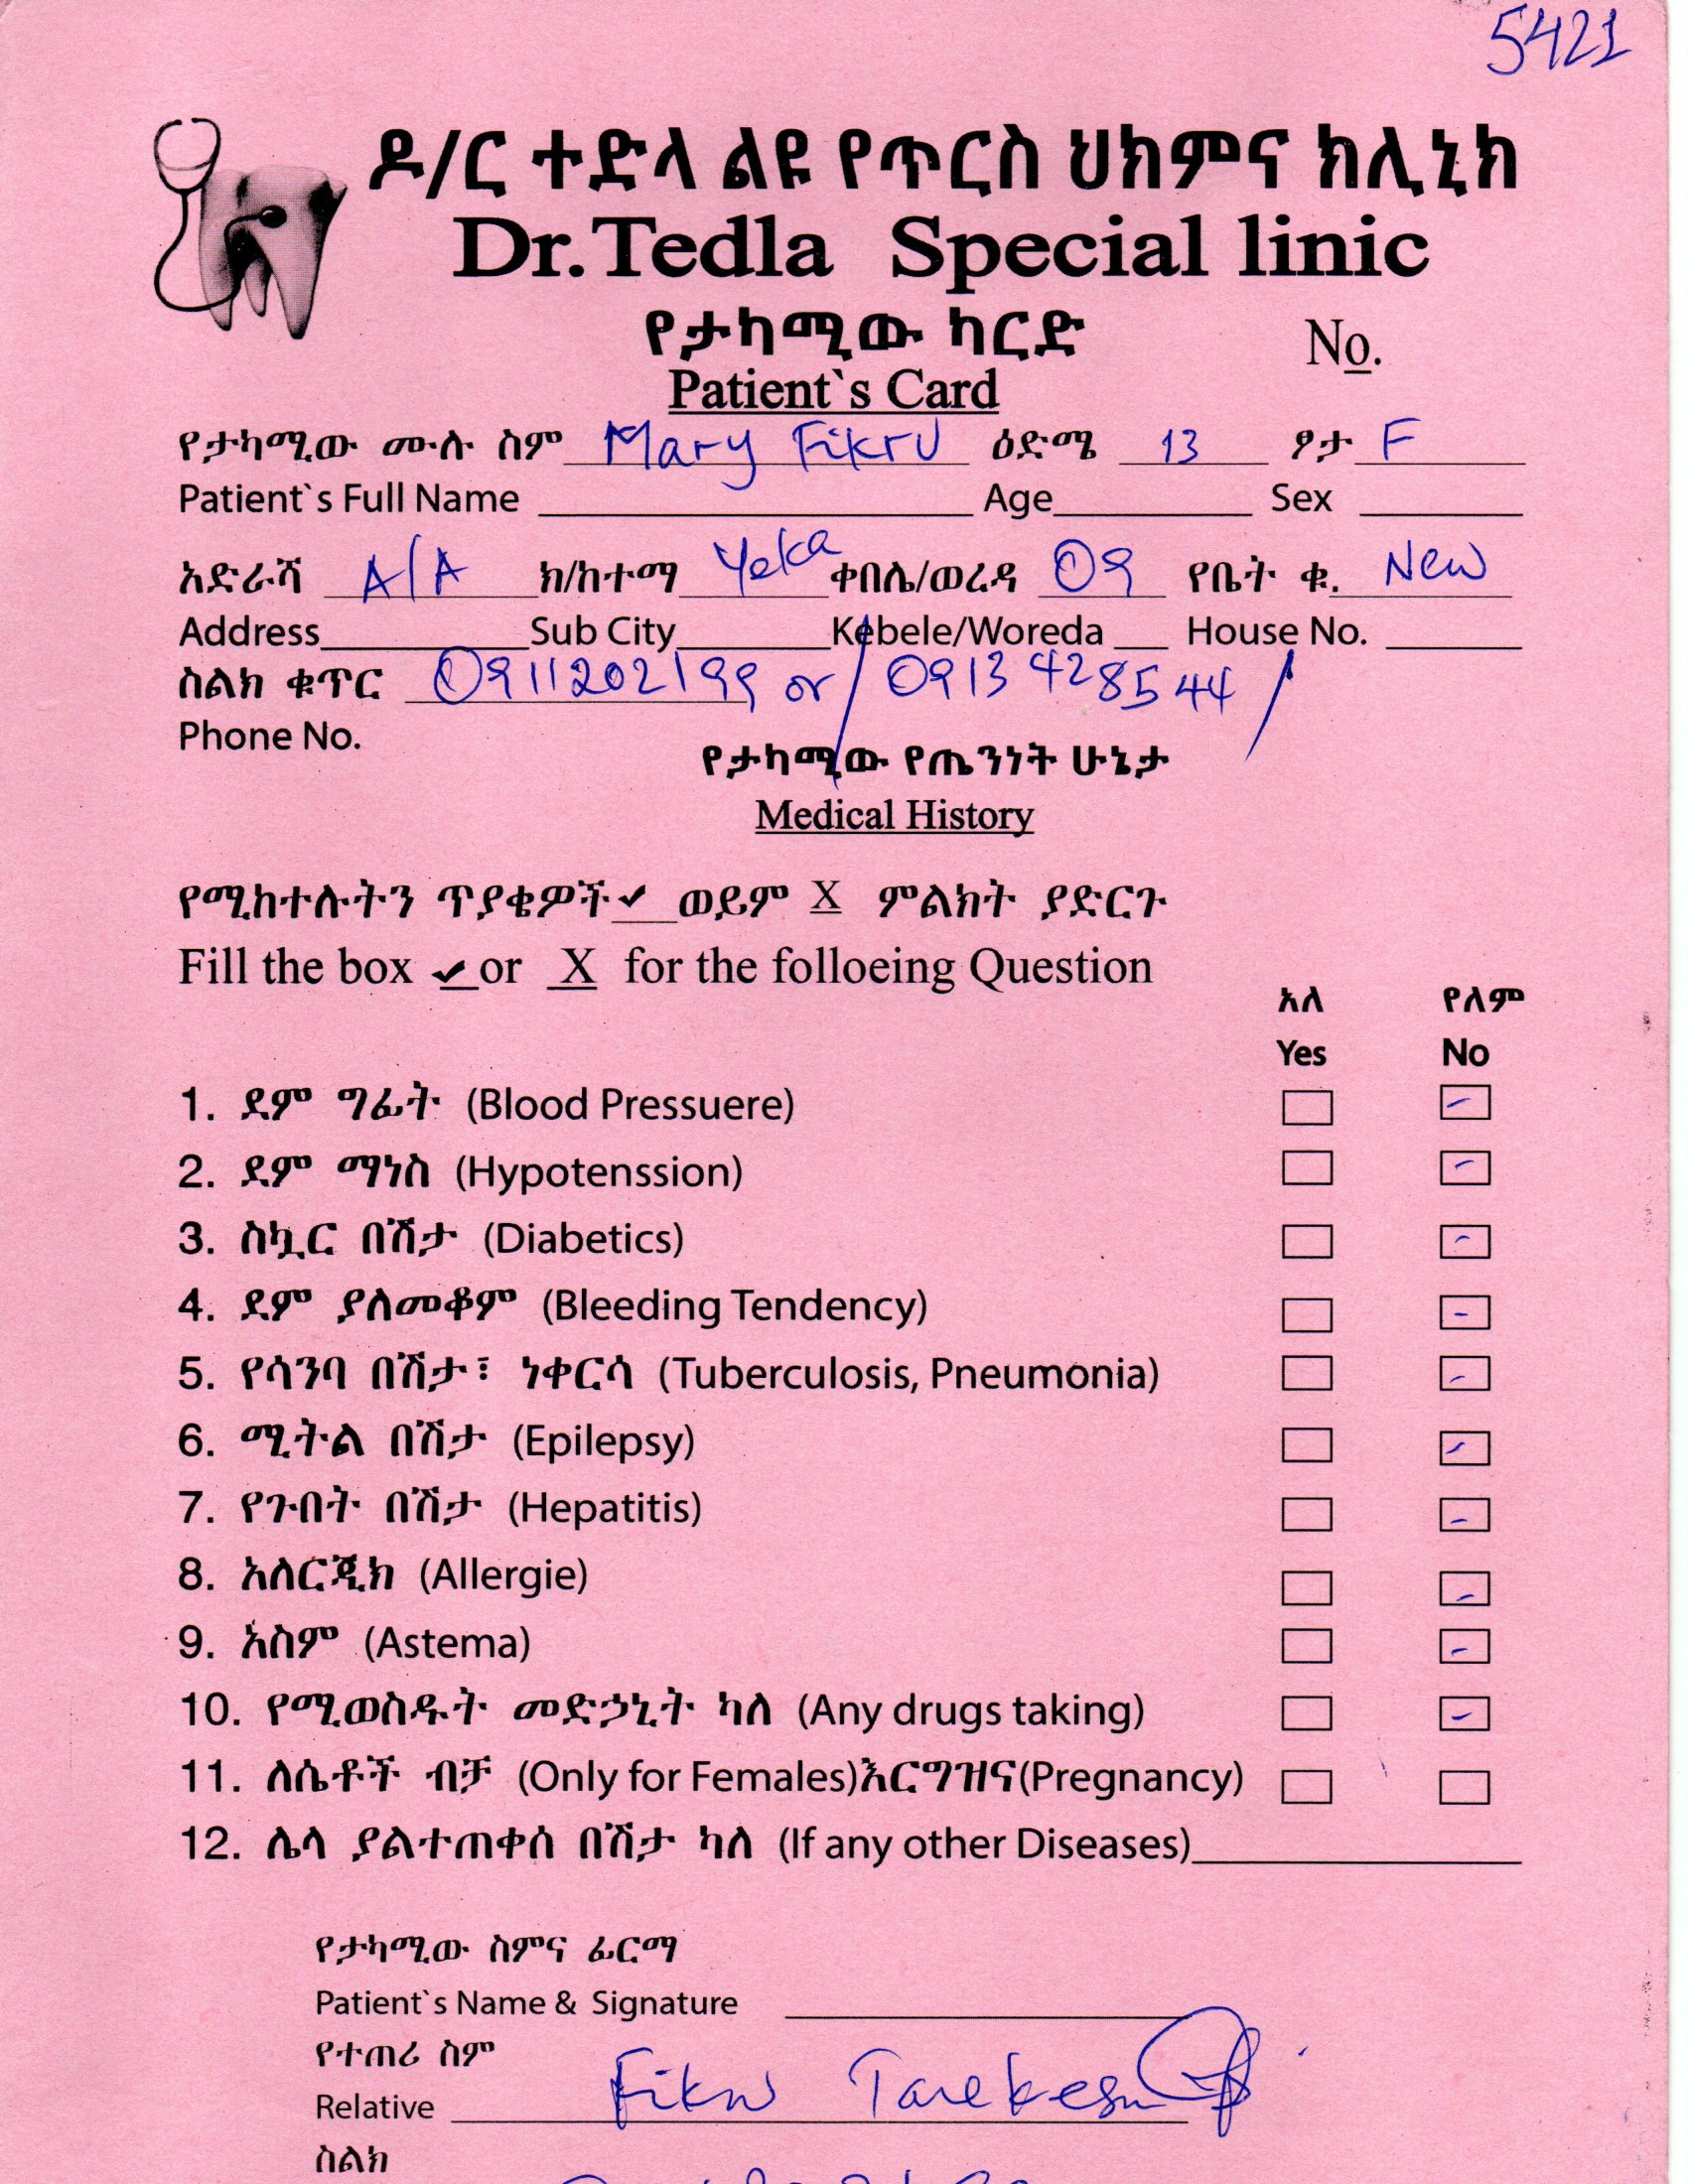 5421
ዶ/ር ተድላ ልዩ የጥርስ ህክምና ክሊኒክ
Dr.Tedla Special linic
የታካሚው ካርድ
No.
Patient`s Card
የታካሚው ሙሉ ስም Mary Fikru ዕድሜ 13 ፆታ F
Patient`s Full Name Age Sex
አድራሻ A/A ክ/ከተማ Yeka ቀበሌ/ወረዳ 09 የቤት ቁ. New
Address Sub City Kebele/Woreda House No.
ስልክ ቁጥር 0911202199 or / 0913 428544 /
Phone No.
የታካሚው የጤንነት ሁኔታ
Medical History
የሚከተሉትን ጥያቄዎች ✓ ወይም X ምልክት ያድርጉ
Fill the box ✓ or X for the folloeing Question
አለ የለም
Yes No
1. ደም ግፊት (Blood Pressuere)
2. ደም ማነስ (Hypotenssion)
3. ስኳር በሽታ (Diabetics)
4. ደም ያለመቆም (Bleeding Tendency)
5. የሳንባ በሽታ፣ ነቀርሳ (Tuberculosis, Pneumonia)
6. ሚትል በሽታ (Epilepsy)
7. የጉበት በሽታ (Hepatitis)
8. አለርጂክ (Allergie)
9. አስም (Astema)
10. የሚወስዱት መድኃኒት ካለ (Any drugs taking)
11. ለሴቶች ብቻ (Only for Females)እርግዝና(Pregnancy)
12. ሌላ ያልተጠቀሰ በሽታ ካለ (If any other Diseases)
የታካሚው ስምና ፊርማ
Patient`s Name & Signature
የተጠሪ ስም
Relative Fikru
ስልክ